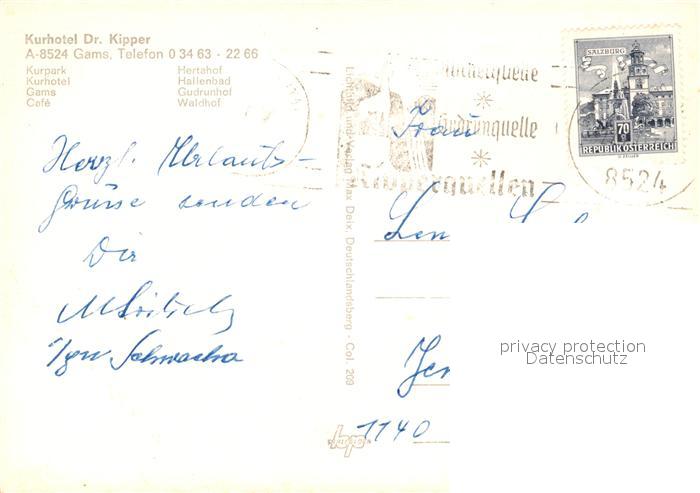 Kurhotel Dr. Kipper
A-8524 Gams, Telefon 0 34 63 - 22 66
Kurpark Hertahof
Kurhotel Hallenbad
Gams Gudrunhof
Café Waldhof
Herzl. Urlaubs-
Grüße senden
Dir
Frau
Len
Jen
1140
Kipperquellen
SALZBURG
70
REPUBLIK ÖSTERREICH
8524
Lichtbild und Verlag Max Deix, Deutschlandsberg - Col. 209
privacy protection
Datenschutz